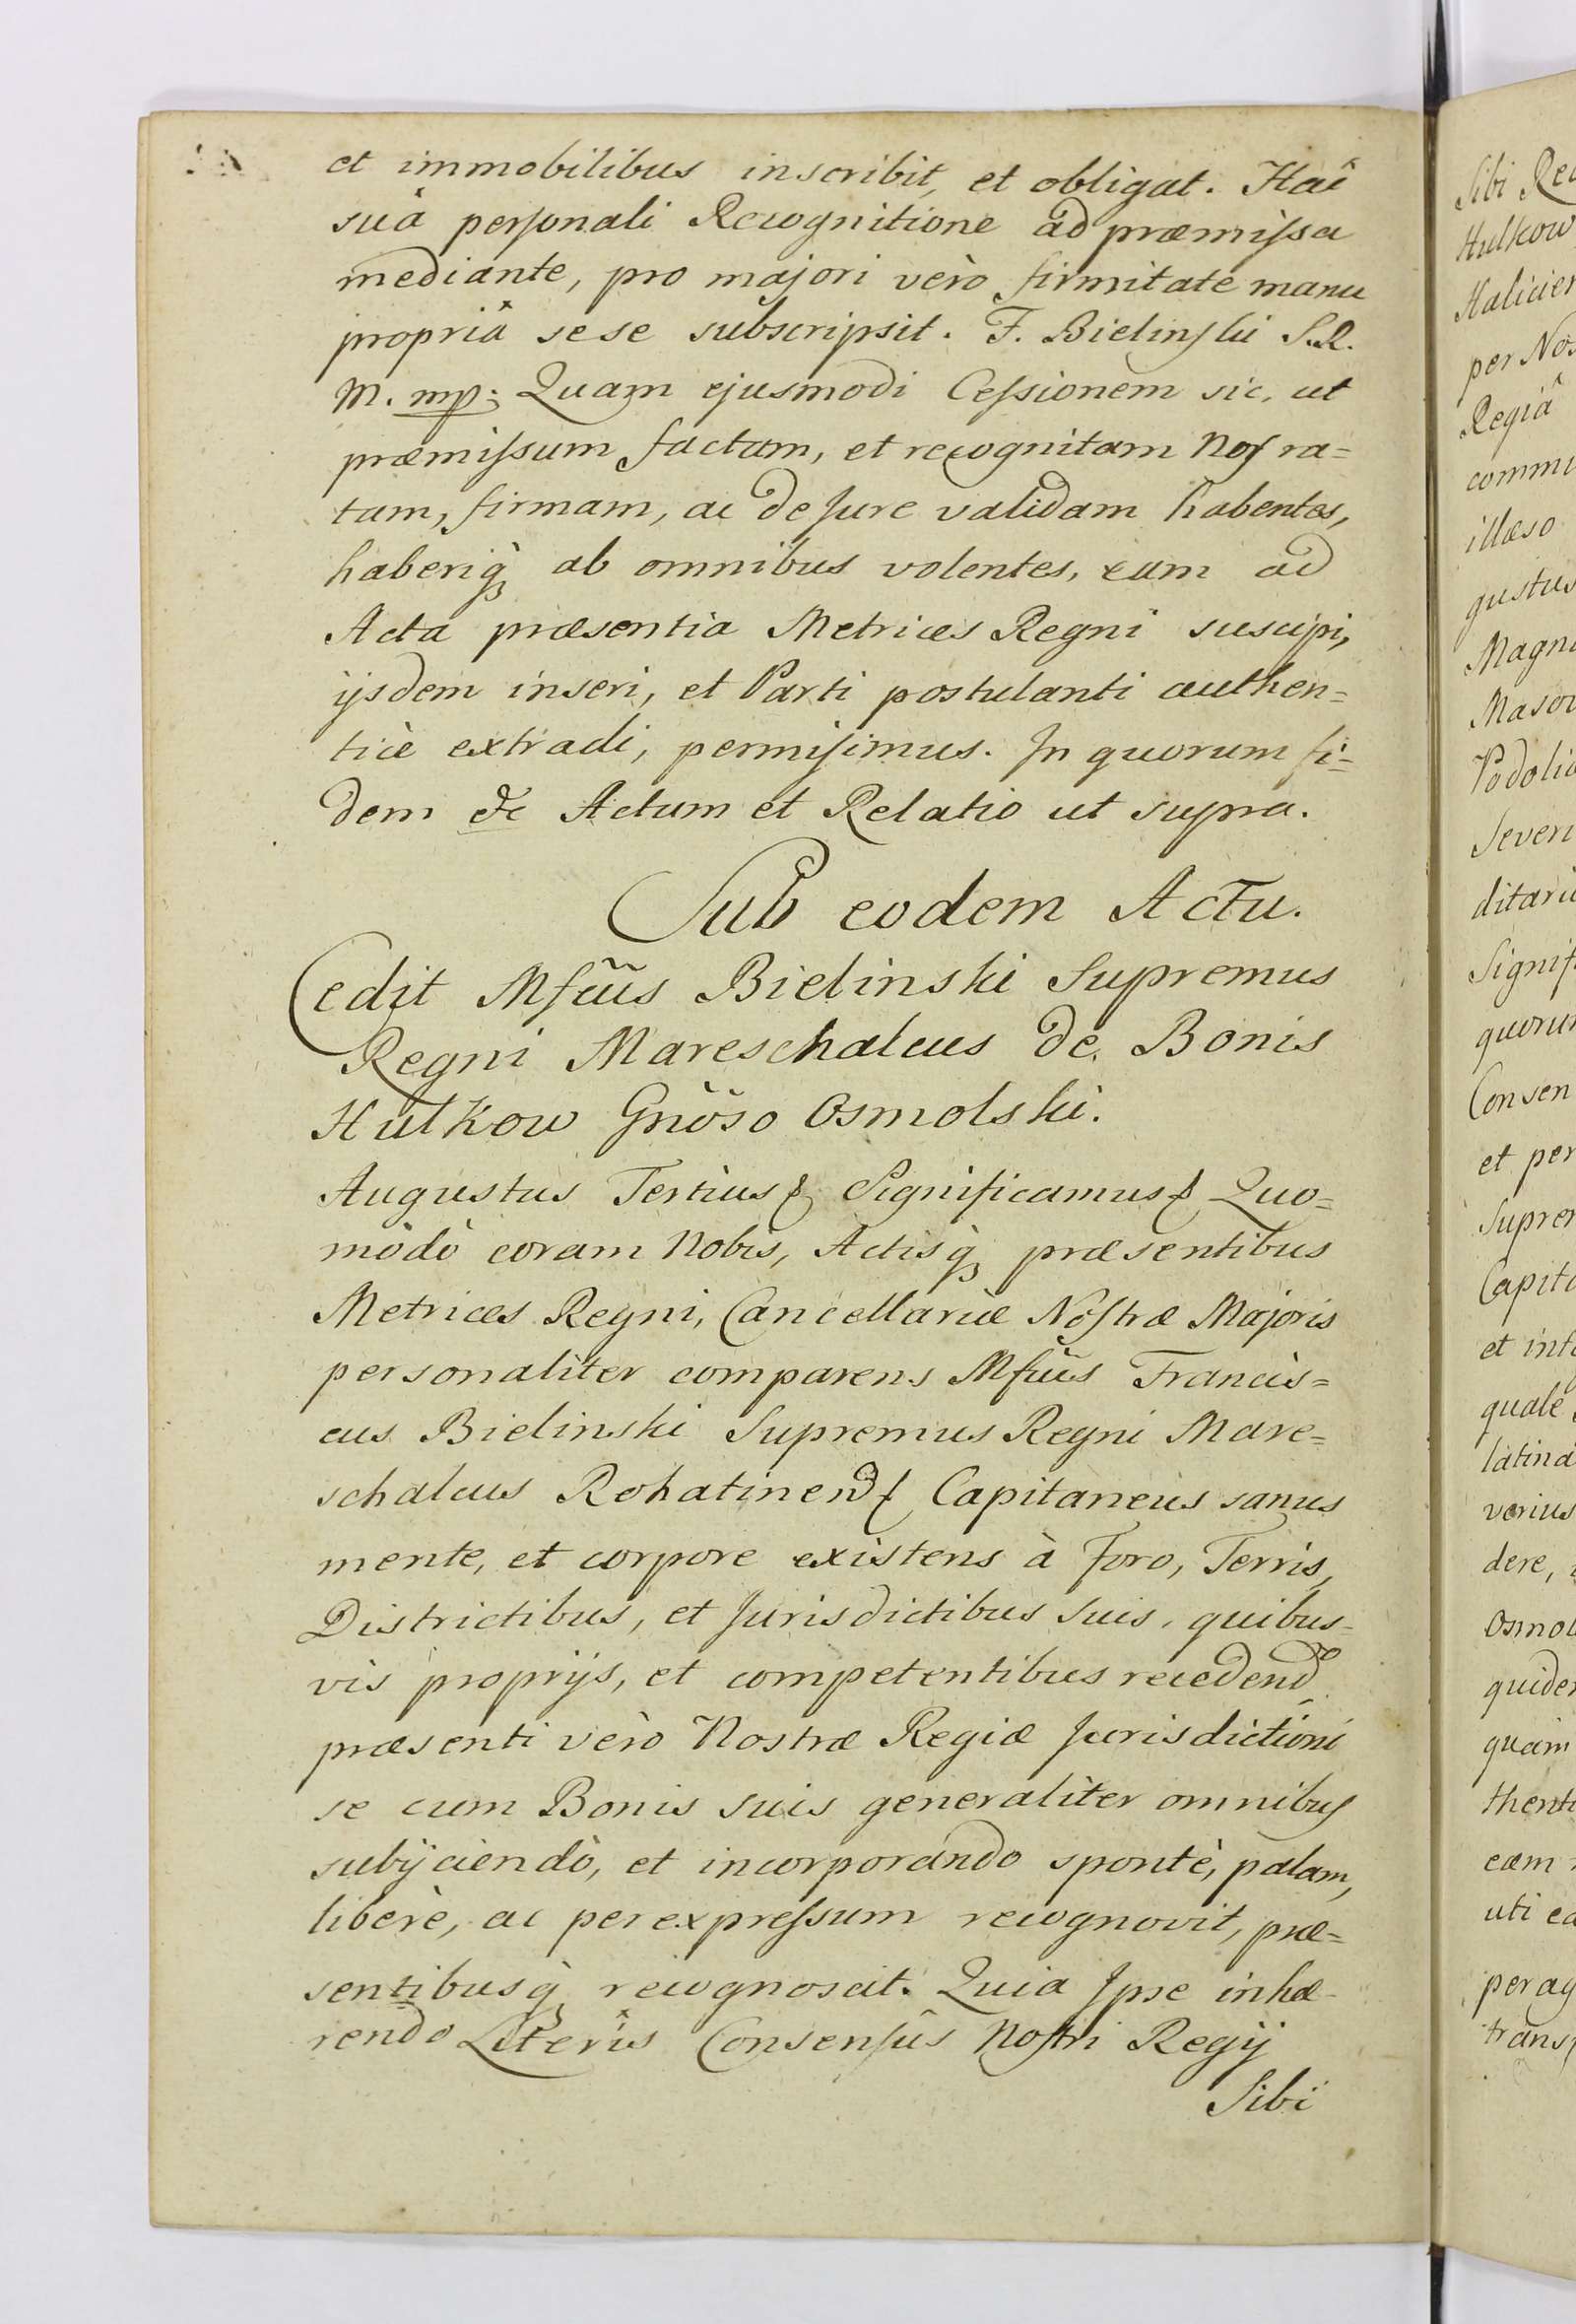 et immobilibus inscribit, et obligat. Hac
suâ personali Recognitione ad præmissa
mediante, pro majori verò firmitate manu
propriâ sese subscripsit. F. Bielinski S.R.
M. mp. Quam ejusmodi Cessionem sic, ut
præmissum factam, et recognitam Nos ra=
tam, firmam, ac de Jure validam habentes,
haberiq̀ ab omnibus volentes, eam ad
Acta præsentia Metrices Regni suscipi,
ijsdem inseri, et Parti postulanti authen=
ticè extradi, permisimus. In quorum fi=
dem &c Actum et Relatio ut supra.
Sub eodem Actu.
Cedit Mfcus Bielinski Supremus
Regni Mareschalcus de Bonis
Hulkow Gnoso Osmolski.
Augustus Tertius & Significamus & Quo=
mòdò coram Nobis, Actisq̀ præsentibus
Metrices Regni, Cancellariæ Nostræ Majoris
personalitèr comparens Mfcus Francis=
cus Bielinski Supremus Regni Mare=
schalcus Rohatinen & Capitaneus sanus
mente, et corpore existens à Foro, Terris,
Districtibus, et Jurisdictibus suis, quibus=
vis proprijs, et competentibus recedendo
præsenti verò Nostræ Regiæ Jurisdictioni
se cum Bonis suis generalitèr omnibus
subijciendò, et incorporando spontè, palam,
liberè, ac per expressum recognovit, præ=
sentibusq̀ recognoscit. Quia Ipse inhæ=
rendo Literis Consensûs Nostri Regij
Sibi
Sibi
Hulkow
per
Regiâ
illæso
et per
Capit
quale
dere,
uti